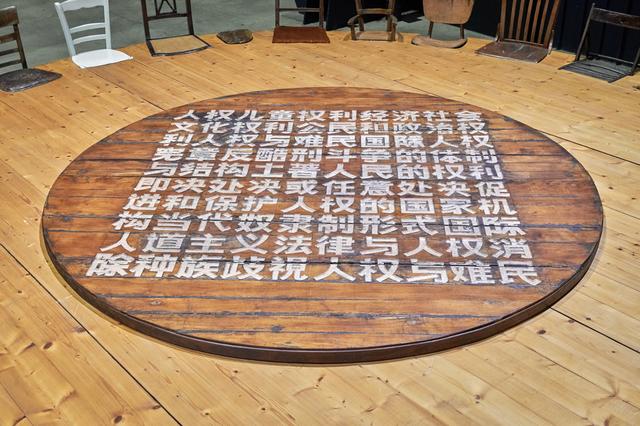 人权儿童权利经济社会
文化权利公民和政治权
利人权与难民国际人权
宪章反酷刑斗争的体制
习结构土著人民的权利
即决处决或任意处决促
进和保护人权的国家机
构当代奴隶制形式国际
人道主义法律与人权消
除种族歧視人权与难民